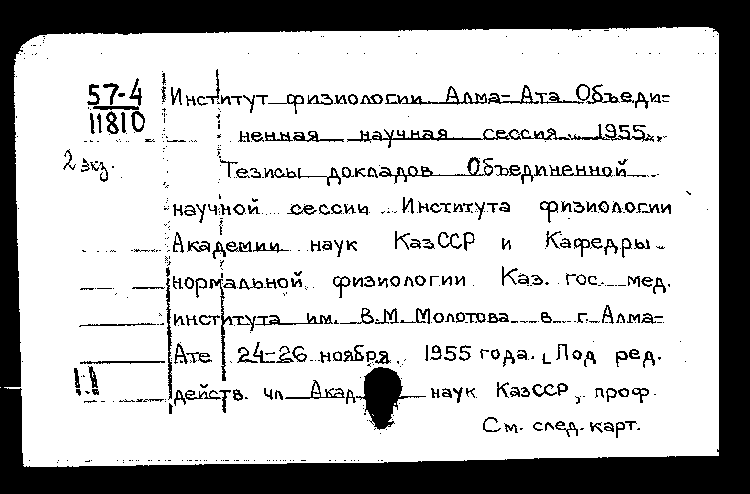 57-4
11810
2 экз.
Институт физиологии Алма-Ата Объеди=
ненная научная сессия 1955.
Тезисы докладов Объединенной
научной сессии Института физиологии
Академии наук КазССР и Кафедры
нормальной физиологии Каз. гос. мед.
института им. В.М. Молотова в г. Алма=
Ате 24-26 ноября 1955 года. [Под ред.
действ. чл Акад наук КазССР, проф.
См. след. карт.